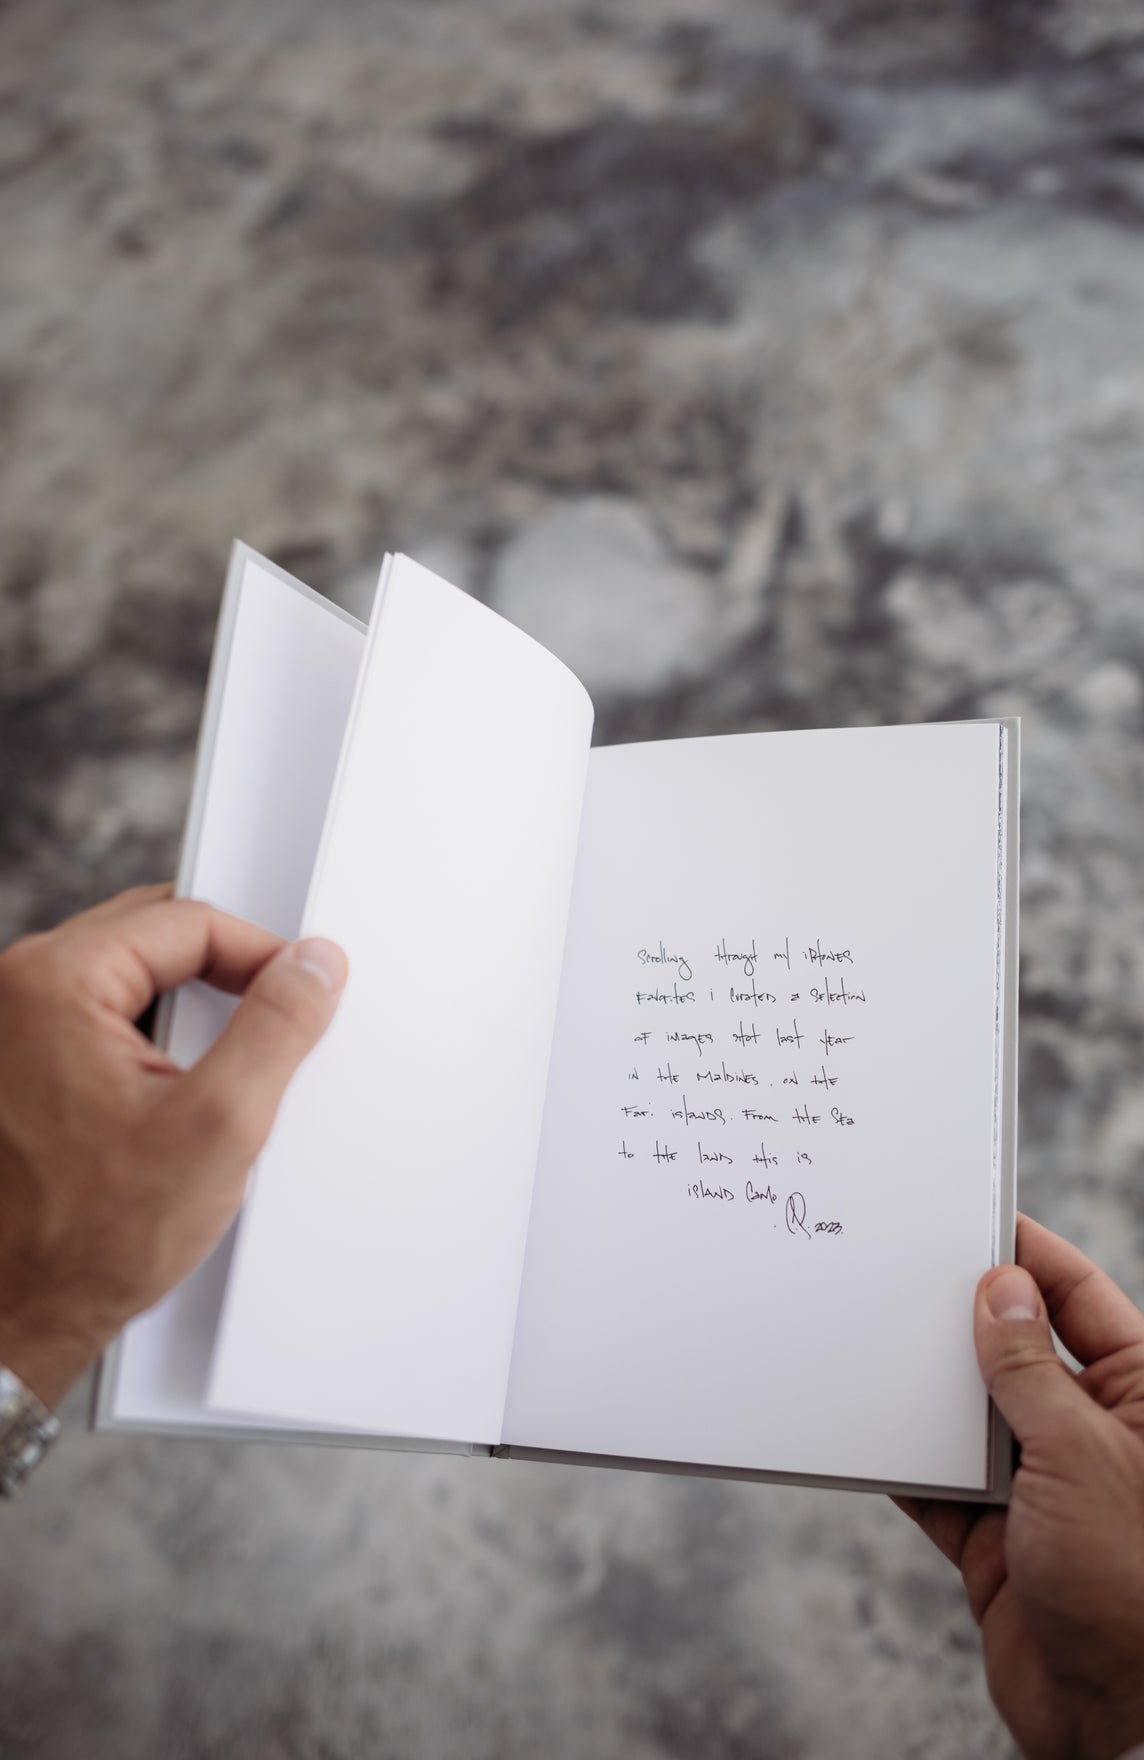 Scrolling through my iPHONES
FAVORITES i CURATED a SELECTION
OF images shot last year
IN the MALDINES. ON the
Fari islands. From the Sea
to the land this is
ISLAND Camo
2023.